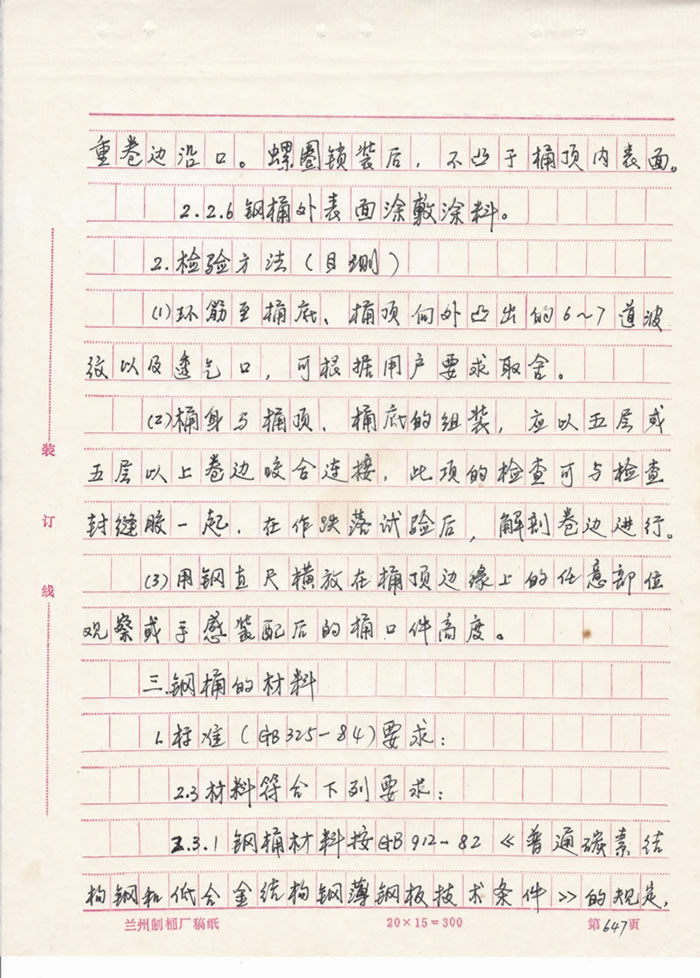 重卷边沿口。螺圈锁装后,不凸于桶顶内表面。
2.2.6钢桶外表面涂敷涂料。
2.检验方法(目测)
(1)环筋至桶底、桶顶向外凸出的6~7道波
纹以及透气口,可根据用户要求取舍。
(2)桶身与桶顶、桶底的组装,应以五层或
五层以上卷边咬合连接,此项的检查可与检查
封缝胶一起,在作跌落试验后,解剖卷边进行。
(3)用钢直尺横放在桶顶边缘上的任意部位
观察或手感装配后的桶口件高度。
三.钢桶的材料
1.标准(GB325-84)要求:
2.3材料符合下列要求:
2.3.1钢桶材料按GB912-82《普通碳素结
构钢和低合金结构钢薄钢板技术条件》的规定,
装
订
线
兰州制桶厂稿纸 20×15=300 第647页